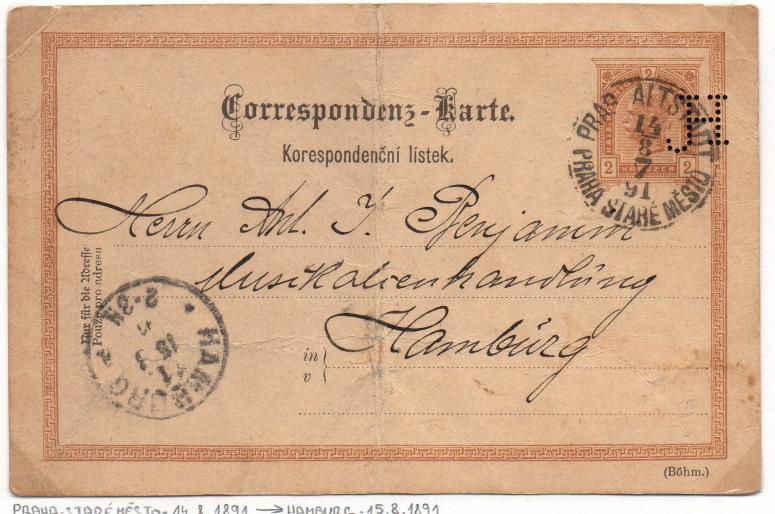 Correspondenz-Karte.
Korespondenční lístek.
2
2 KREUZER 2
PRAG ALTSTADT
14
8
7
91
PRAHA STARÉ MĚSTO
JH
Herrn Ant. J. Benjamin
Musikalienhandlung
in
v
Hamburg
Nur für die Adresse
Pouze pro adresu
HAMBURG
15 8
91
2-3N
(Böhm.)
PRAHA-STARÉ MĚSTO - 14.8.1891 → HAMBURG - 15.8.1891